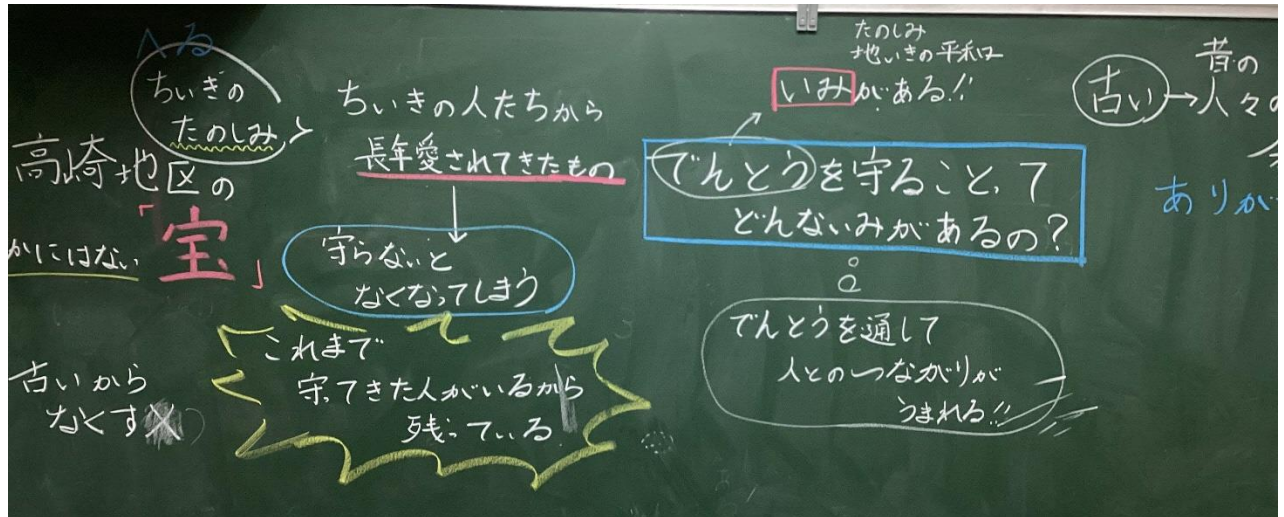 へる
ちいきの
たのしみ
高崎地区の
「宝」
かにはない
古いから
なくす
ちいきの人たちから
長年愛されてきたもの
守らないと
なくなってしまう
これまで
守ってきた人がいるから
残っている
たのしみ
地いきの平和
いみがある!!
でんとうを守ること、て
どんないみがあるの?
でんとうを通して
人とのつながりが
うまれる!!
古い→
昔の
人々の
ありが